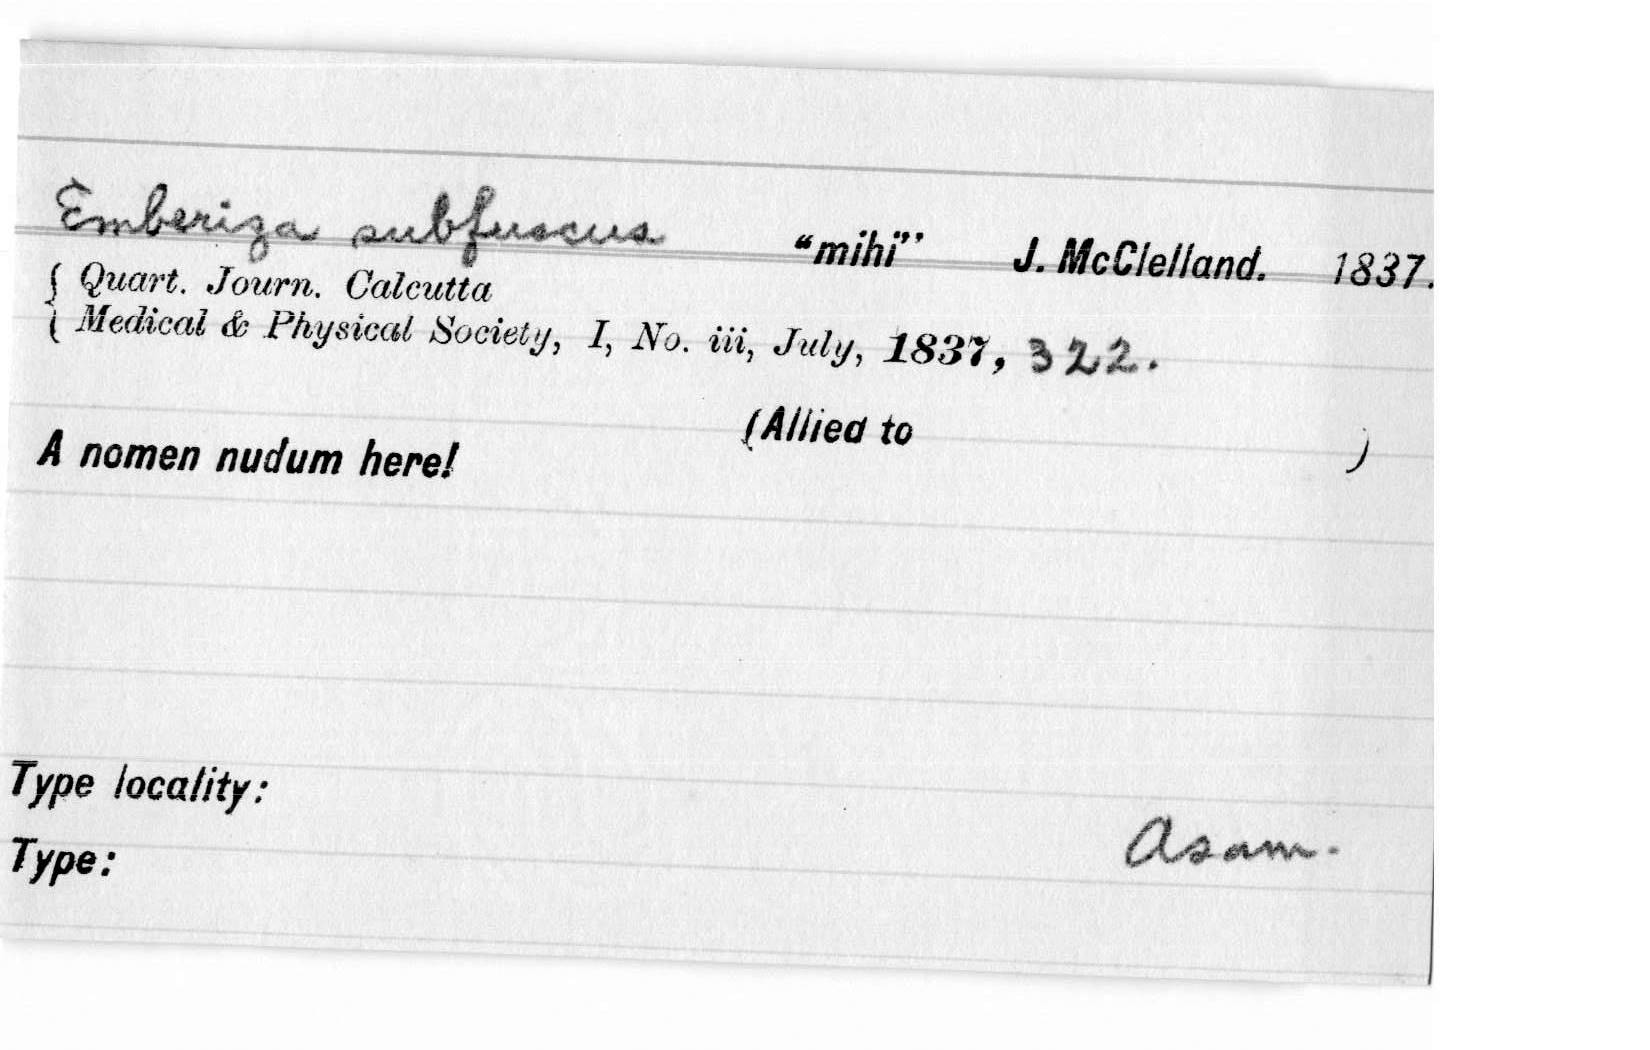 Emberiza subfuscus "mihi" J. McClelland. 1837.
{ Quart. Journn. Calcutta
{ Medical & Physical Society, I, No. iii, July, 1837, 322.
(Allied to )
A nomen nudum here!
Type locality:
Asam.
Type: